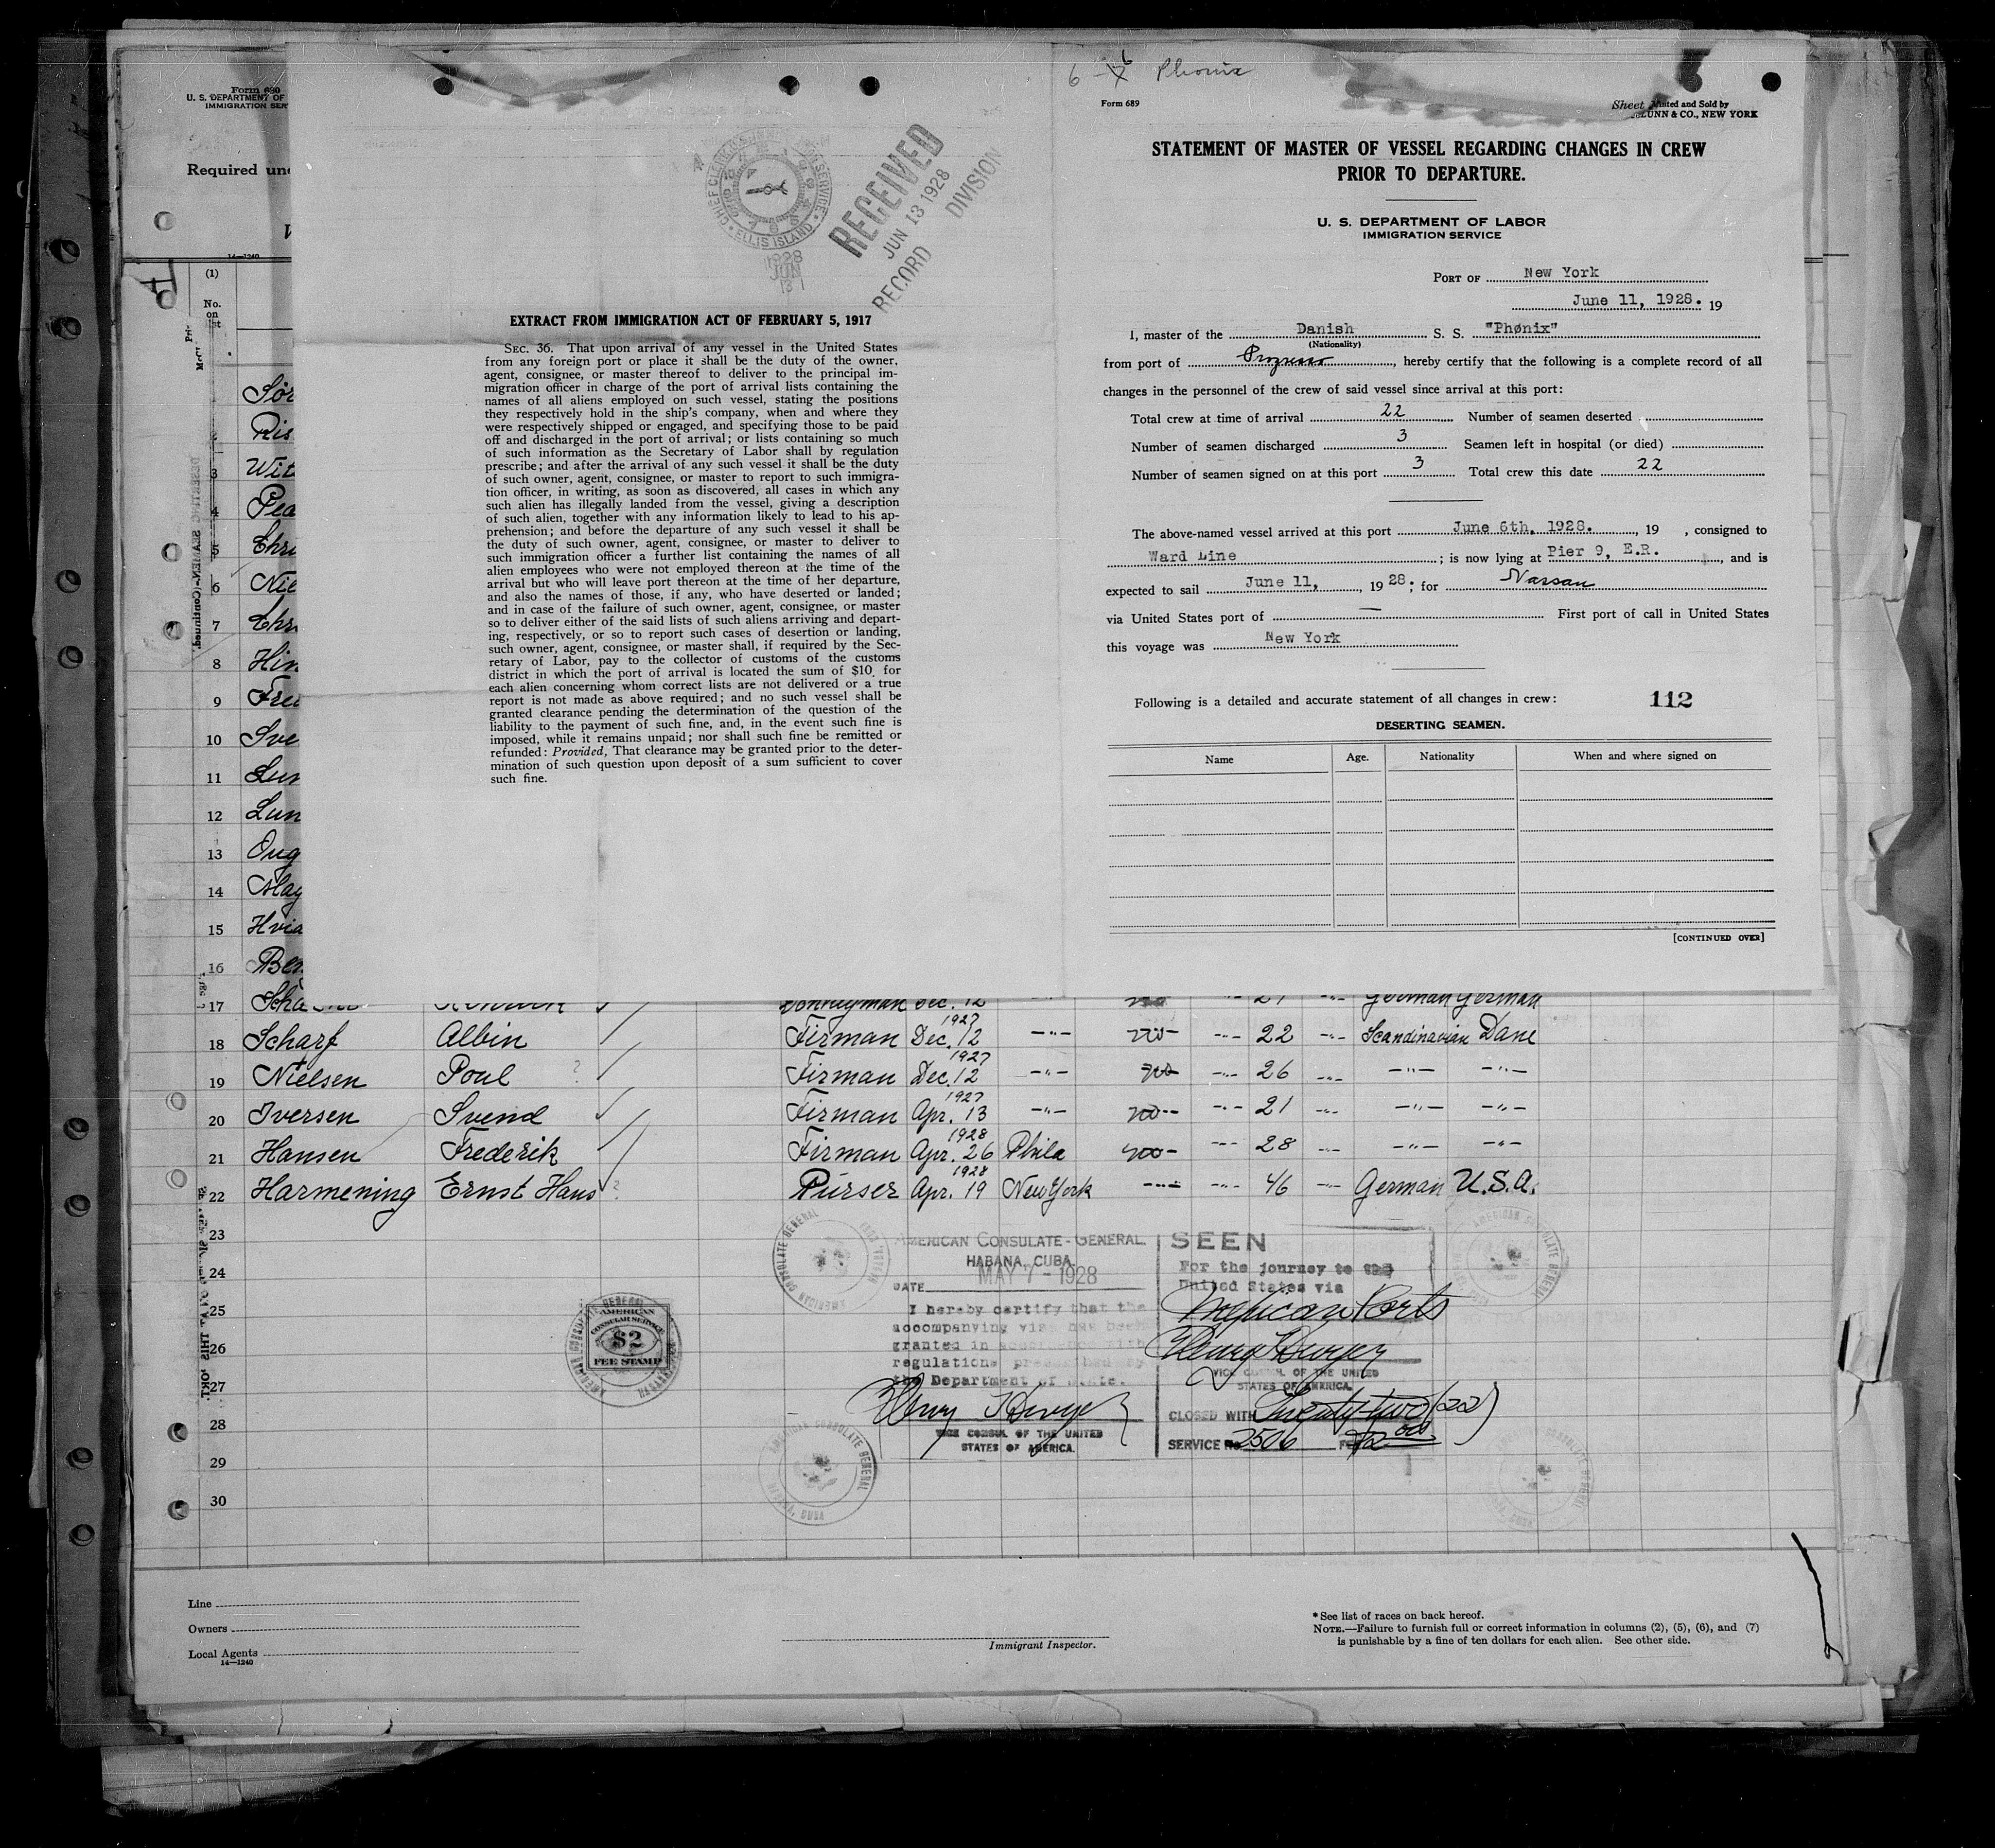 6 - 6 Phonix
Form 689
Sheet
Printed and Sold by
LUNN & CO., NEW YORK
STATEMENT OF MASTER OF VESSEL REGARDING CHANGES IN CREW
PRIOR TO DEPARTURE.
U. S. DEPARTMENT OF LABOR
IMMIGRATION SERVICE
PORT OF New York
June 11, 1928. 19
I, master of the Danish S. S. "Phønix"
(Nationality)
from port of Progreso, hereby certify that the following is a complete record of all
changes in the personnel of the crew of said vessel since arrival at this port:
Total crew at time of arrival 22 Number of seamen deserted
Number of seamen discharged 3 Seamen left in hospital (or died)
Number of seamen signed on at this port 3 Total crew this date 22
The above-named vessel arrived at this port June 6th, 1928., 19 , consigned to
Ward Line ; is now lying at Pier 9, E.R., and is
expected to sail June 11, , 1928.; for Nassau
via United States port of — First port of call in United States
this voyage was New York
Following is a detailed and accurate statement of all changes in crew: 112
DESERTING SEAMEN.
Name Age. Nationality When and where signed on
[CONTINUED OVER]
CHIEF CLERK
SERVICE
ELLIS ISLAND
1928
JUN
13
RECEIVED
JUN 13 1928
RECORD DIVISION
EXTRACT FROM IMMIGRATION ACT OF FEBRUARY 5, 1917
SEC. 36. That upon arrival of any vessel in the United States
from any foreign port or place it shall be the duty of the owner,
agent, consignee, or master thereof to deliver to the principal im-
migration officer in charge of the port of arrival lists containing the
names of all aliens employed on such vessel, stating the positions
they respectively hold in the ship's company, when and where they
were respectively shipped or engaged, and specifying those to be paid
off and discharged in the port of arrival; or lists containing so much
of such information as the Secretary of Labor shall by regulation
prescribe; and after the arrival of any such vessel it shall be the duty
of such owner, agent, consignee, or master to report to such immigra-
tion officer, in writing, as soon as discovered, all cases in which any
such alien has illegally landed from the vessel, giving a description
of such alien, together with any information likely to lead to his ap-
prehension; and before the departure of any such vessel it shall be
the duty of such owner, agent, consignee, or master to deliver to
such immigration officer a further list containing the names of all
alien employees who were not employed thereon at the time of the
arrival but who will leave port thereon at the time of her departure,
and also the names of those, if any, who have deserted or landed;
and in case of the failure of such owner, agent, consignee, or master
so to deliver either of the said lists of such aliens arriving and depart-
ing, respectively, or so to report such cases of desertion or landing,
such owner, agent, consignee, or master shall, if required by the Sec-
retary of Labor, pay to the collector of customs of the customs
district in which the port of arrival is located the sum of $10 for
each alien concerning whom correct lists are not delivered or a true
report is not made as above required; and no such vessel shall be
granted clearance pending the determination of the question of the
liability to the payment of such fine, and, in the event such fine is
imposed, while it remains unpaid; nor shall such fine be remitted or
refunded: Provided, That clearance may be granted prior to the deter-
mination of such question upon deposit of a sum sufficient to cover
such fine.
Form 680
U. S. DEPARTMENT OF
IMMIGRATION SER
Required und
14—1240
(1)
No.
on
list
Sör
2 Ris
3 Wit
4 Pea
5 Chri
6 Nie
7 Chri
8 Hin
9 Fred
10 Sve
11 Lun
12 Lun
13 Oug
14 May
15 Hvid
16 Ben
17 Scha Donkeyman Dec. 12 27 German German
18 Scharf Albin Firman Dec. 12 1927 -"- no -"- 22 -"- Scandinavian Dane
19 Nielsen Poul ? Firman Dec. 12 1927 -"- no -"- 26 -"- -"- -"-
20 Iversen Svend Firman Apr. 13 1927 -"- no -"- 21 -"- -"- -"-
21 Hansen Frederik Firman Apr. 26 1928 Phila no -"- 28 -"- -"- -"-
22 Harmening Ernst Hans ? Purser Apr. 19 1928 New York -"- -"- 46 -"- German U.S.A.
23
24
25
26
27
28
29
30
AMERICAN CONSULATE-GENERAL.
HABANA, CUBA.
DATE MAY 7 - 1928
I hereby certify that the
accompanying visa has been
granted in accordance with
regulations prescribed by
the Department of State.
Henry T Dwyer
VICE CONSUL OF THE UNITED
STATES OF AMERICA.
SEEN
For the journey to the
United States via
Mexican Ports
Henry T Dwyer
VICE CONSUL OF THE UNITED
STATES OF AMERICA.
CLOSED WITH Twenty-two (22)
SERVICE No. 2506 FEE $2.00
AMERICAN
CONSULAR SERVICE
$2
FEE STAMP
AMERICAN CONSULATE GENERAL
HABANA, CUBA
Line
Owners
Local Agents
14—1240
Immigrant Inspector.
*See list of races on back hereof.
NOTE.—Failure to furnish full or correct information in columns (2), (5), (6), and (7)
is punishable by a fine of ten dollars for each alien. See other side.